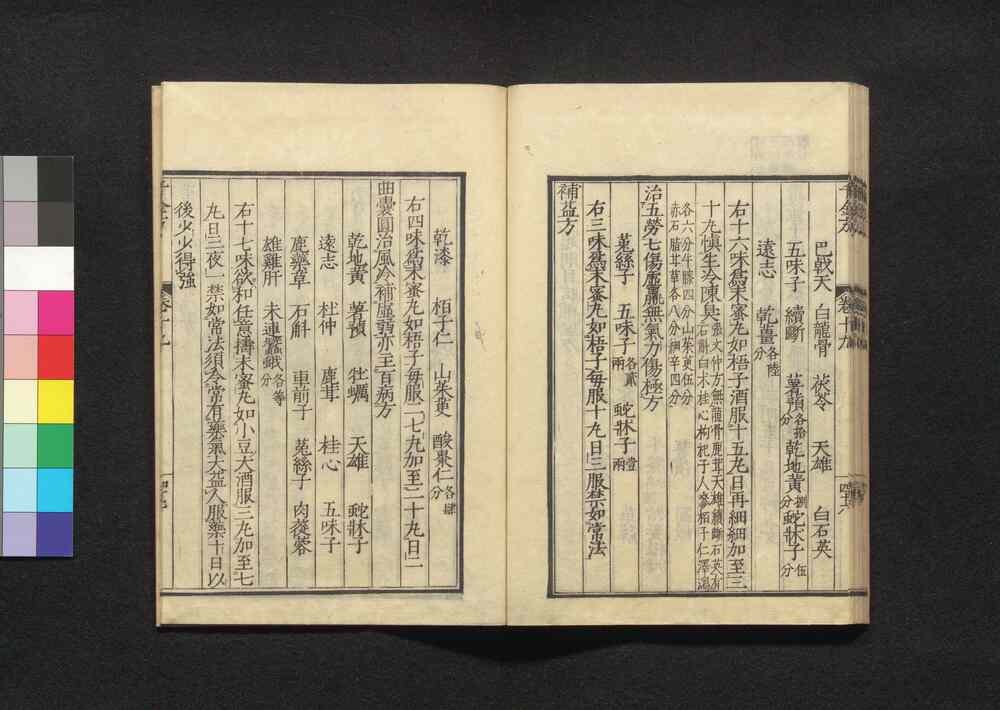 巴戟天 白龍骨 茯苓 天雄 白石英
五味子 續斷 薯蕷各拾分 乾地黃捌分 虵牀子伍分
遠志 乾薑各陸分
右十六味爲末蜜丸如梧子酒服十五丸日再細細加至三
十丸愼生冷陳臭
張文仲方無龍骨鹿茸天雄續斷石英有
石斛白术桂心枸杞子人參栢子仁澤瀉
各六分牛膝四分山茱萸伍分
赤石脂茸草各八分細辛四分
治五勞七傷虛羸無氣力傷極方
菟絲子 五味子各貳兩 虵牀子壹兩
右三味爲末蜜丸如梧子每服十丸日三服禁如常法
補益方
乾漆 栢子仁 山茱萸 酸棗仁各肆分
右四味爲末蜜丸如梧子每服二七丸加至二十丸日二
曲囊圓治風冷補虛弱亦主百病方
乾地黃 薯蕷 牡蠣 天雄 虵牀子
遠志 杜仲 鹿茸 桂心 五味子
鹿藥草 石斛 車前子 菟絲子 肉蓯蓉
雄雞肝 未連蠶蛾各等分
右十七味欲和任意擣末蜜丸如小豆大酒服三丸加至七
丸日三夜一禁如常法須令常有藥氣大益人服藥十日以
後少少得強
卷十九